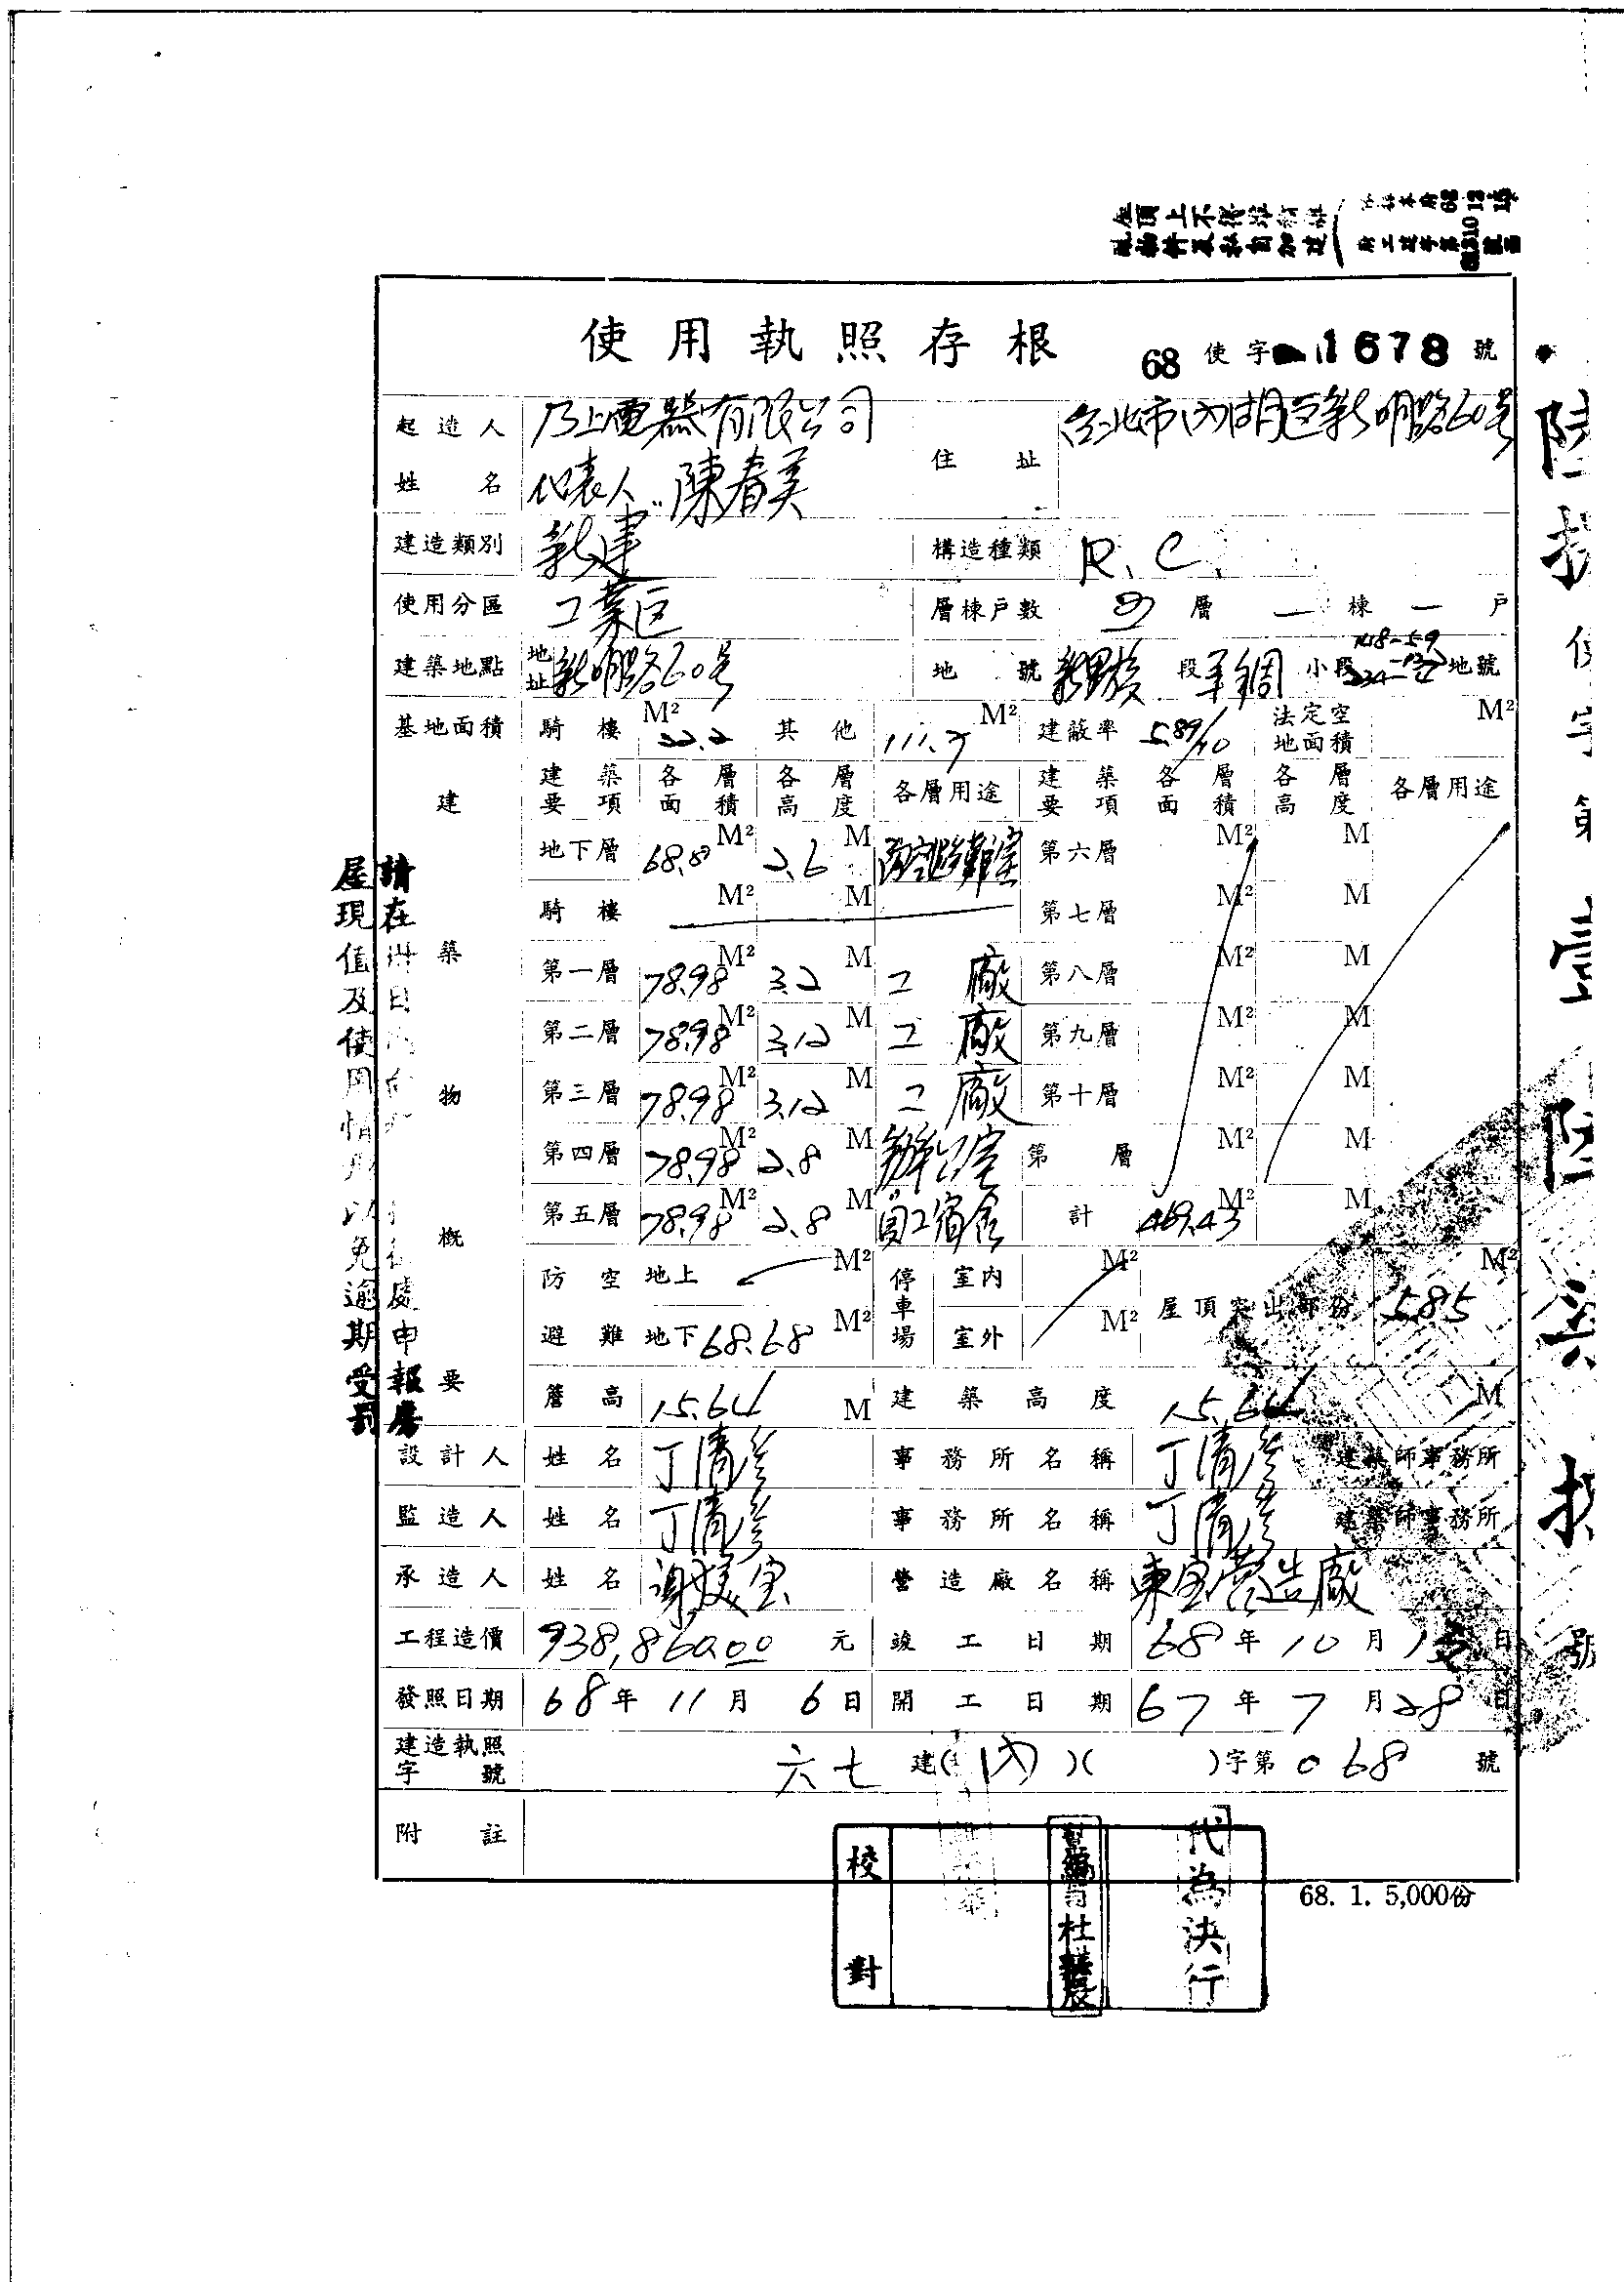 使用執照存根 68使字 1678號
起造人姓名 乃上電器有限公司 代表人 陳春美 住址 台北市內湖區新明路60號
建造類別 新建 構造種類 R.C.
使用分區 工業區 層棟戶數 層一棟一戶
建築地點 地址 新明路60號 地號 新里族段羊稠小段 地號
基地面積 騎樓 22.2 M² 其他 M² 建蔽率 5.89/10 法定空地面積 M²
建築物概要
建築要項 各層面積 各層高度 各層用途 建築要項 各層面積 各層高度 各層用途
地下層 M² 2.6 M 防空避難室 第六層 M² M
騎樓 M² M 第七層 M² M
第一層 78.98 M² 3.2 M 工廠 第八層 M² M
第二層 78.98 M² 3.12 M 工廠 第九層 M² M
第三層 78.98 M² 3.12 M 工廠 第十層 M² M
第四層 78.98 M² 2.8 M 辦公室 第 層 M² M
第五層 78.98 M² 2.8 M 員工宿舍 計 469.43 M² M
防空避難 地上 M² 停車場 室內 M² 屋頂突出部份 5.85 M²
地下 68.68 M² 室外 M²
簷高 15.64 M 建築高度 15.64 M
設計人 姓名 丁清彥 事務所名稱 丁清彥 建築師事務所
監造人 姓名 丁清彥 事務所名稱 丁清彥 建築師事務所
承造人 姓名 營造廠名稱 東宝營造廠
工程造價 938,860.00 元 竣工日期 68年10月 日
發照日期 68年11月6日 開工日期 67年7月28日
建造執照字號 六七建(內)( )字第068號
附註
校對
代為決行
68. 1. 5,000份